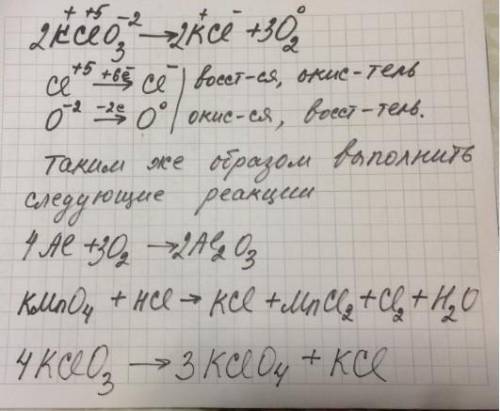 2K⁺Cl⁺⁵O₃⁻² → 2K⁺Cl⁻ + 3O₂⁰
Cl⁺⁵ +6e⁻→ Cl⁻ | восст-ся, окис-тель
O⁻² -2e→ O⁰ | окис-ся, восст-тель.
Таким же образом выполнить
следующие реакции
4Al + 3O₂ → 2Al₂O₃
KMnO₄ + HCl → KCl + MnCl₂ + Cl₂ + H₂O
4KClO₃ → 3KClO₄ + KCl